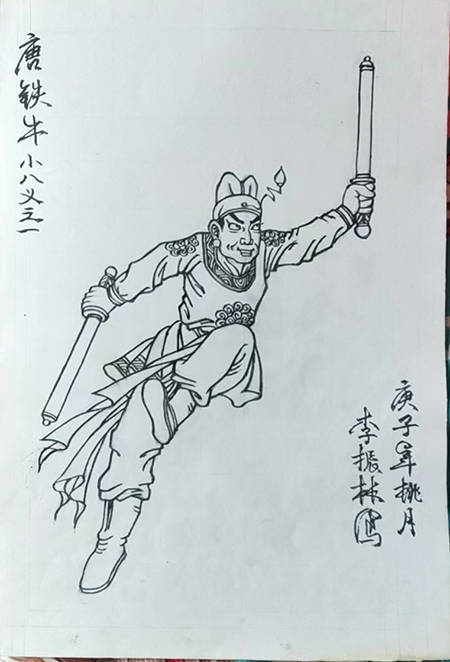 唐铁牛小八义之一
庚子年桃月
李振林画